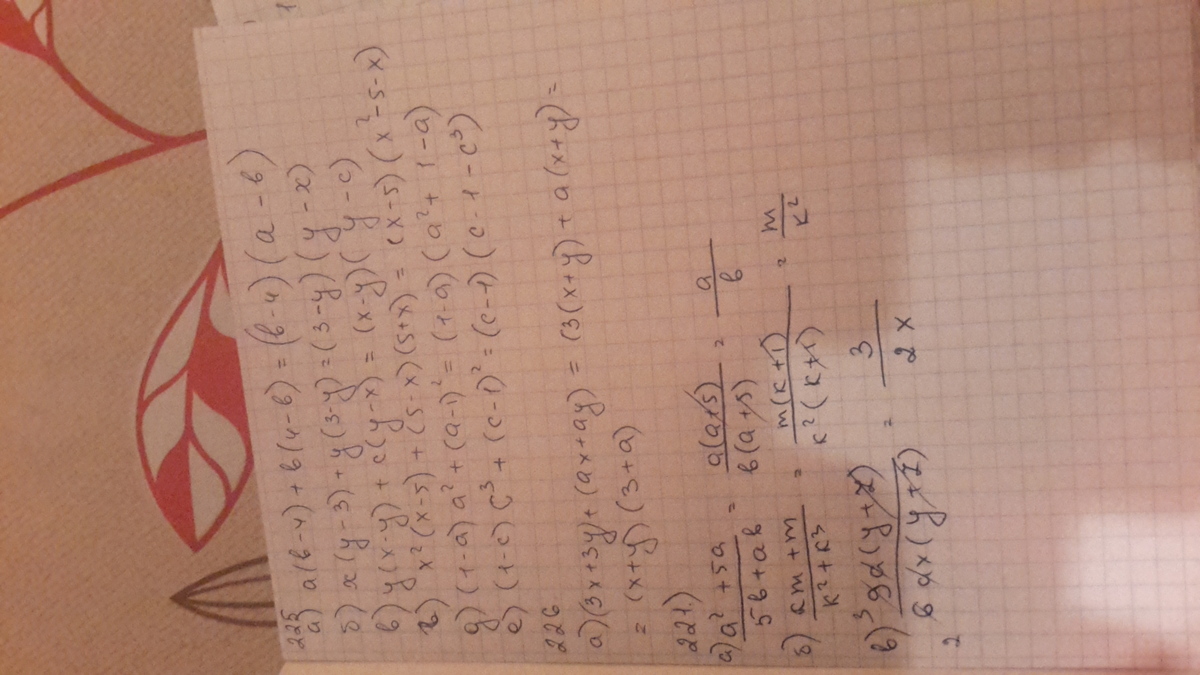 225
а) a(b-4)+b(4-b) = (b-4)(a-b)
б) x(y-3)+y(3-y) = (3-y)(y-x)
в) y(x-y)+c(y-x) = (x-y)(y-c)
г) x²(x-5)+(5-x)(5+x) = (x-5)(x²-5-x)
д) (1-a)a²+(a-1)² = (1-a)(a²+1-a)
е) (1-c)c³+(c-1)² = (c-1)(c-1-c³)
226
а) (3x+3y)+(ax+ay) = (3(x+y)+a(x+y) =
= (x+y)(3+a)
221.)
а) a²+5a / 5b+ab = a(a+5) / b(a+5) = a / b
б) кm+m / к²+к³ = m(к+1) / к²(к+1) = m / к²
в) ³9d(y+2) / 6dx(y+2) = 3 / 2x
2